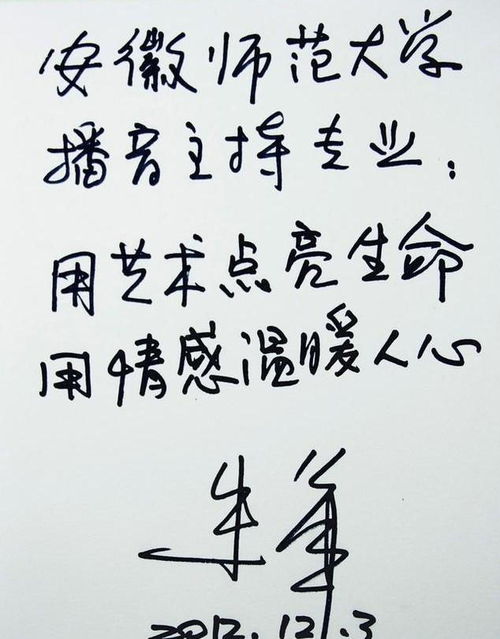 安徽师范大学
播音主持专业：
用艺术点亮生命
用情感温暖人心
朱军
2012.12.3